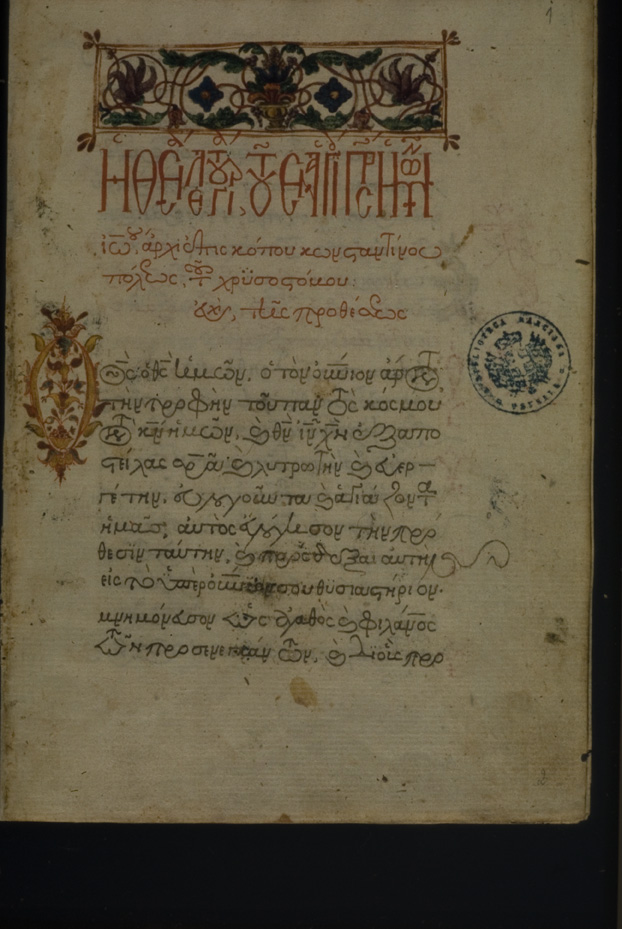 1
Ἡ ΘΕΙ ΛΥΤΟΥΡΓΙ, ΤΟΥ ΕΝ ΑΓΙ ΠΡΣ ΗΜΩΝ
ἰω, ἀρχιεπισκόπου κωνσταντίνου
πόλεως, τοῦ χρϋσοστόμου
εὐχὴ, τῆς προθέσεως
ὁ θς ὁ θς ἡμῶν, ὁ τὸν οὐνιον ἄρτον
τὴν τροφὴν τοῦ παντὸς κόσμου
τὸν κν ἡμῶν, καὶ θν ἰν χν ἐξαπο
στείλας σρα καὶ λυτρωτὴν καὶ εὐερ
γέτην, εὐλογοῦντα καὶ ἁγιάζοντα
ἡμᾶς, αὐτὸς εὐλόγησον τὴν πρό
θεσϊν ταύτην, καὶ πρόσδεξαι αὐτὴν
εἰς τὸ ὑπερουνιόν σου θϋσιαστήριον.
μνημόνευσον ὡς ἀγαθὸς καὶ φιλάνος
τῶν προσενεγκάντων, καὶ δι οὓς προ